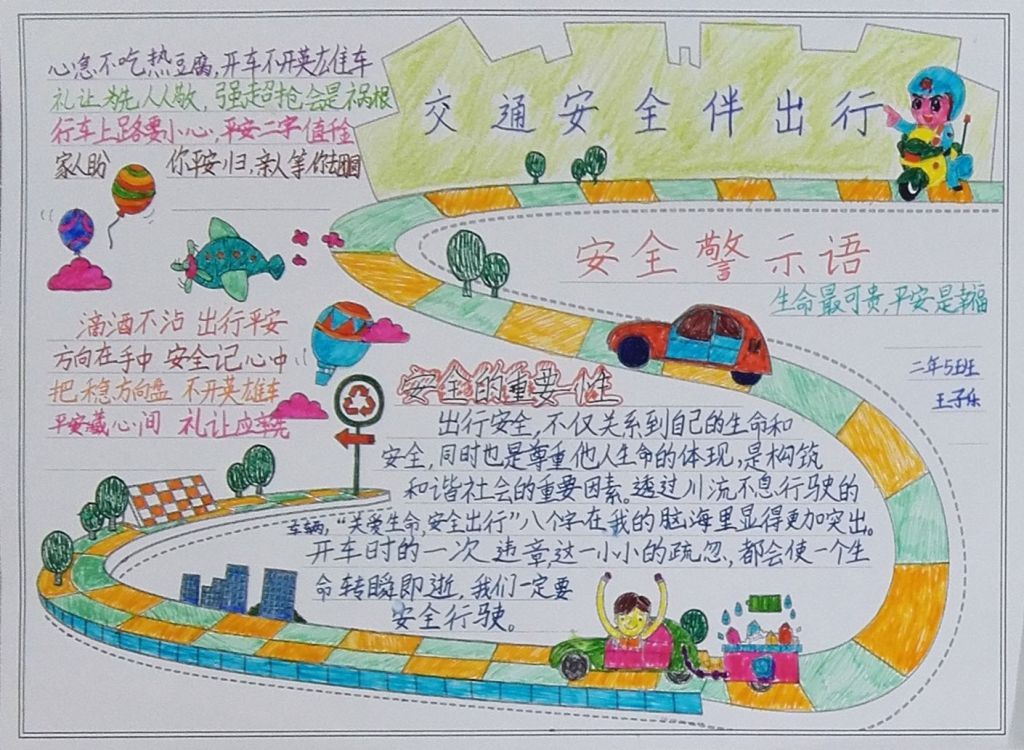 心急不吃热豆腐,开车不开英雄车
礼让为先人人敬,强超抢会是祸根
行车上路要小心,平安二字值千金
家人盼 你平安归,亲人等你去团圆
交通安全伴出行
安全警示语
生命最可贵,平安是幸福
二年5班
王子乐
滴酒不沾 出行平安
方向在手中 安全记心中
把稳方向盘 不开英雄车
平安藏心间 礼让应率先
安全的重要性
出行安全,不仅关系到自己的生命和
安全,同时也是尊重他人生命的体现,是构筑
和谐社会的重要因素。透过川流不息行驶的
车辆,“关爱生命,安全出行”八个字在我的脑海里显得更加突出。
开车时的一次违章,这一小小的疏忽,都会使一个生
命转瞬即逝,我们一定要
安全行驶。